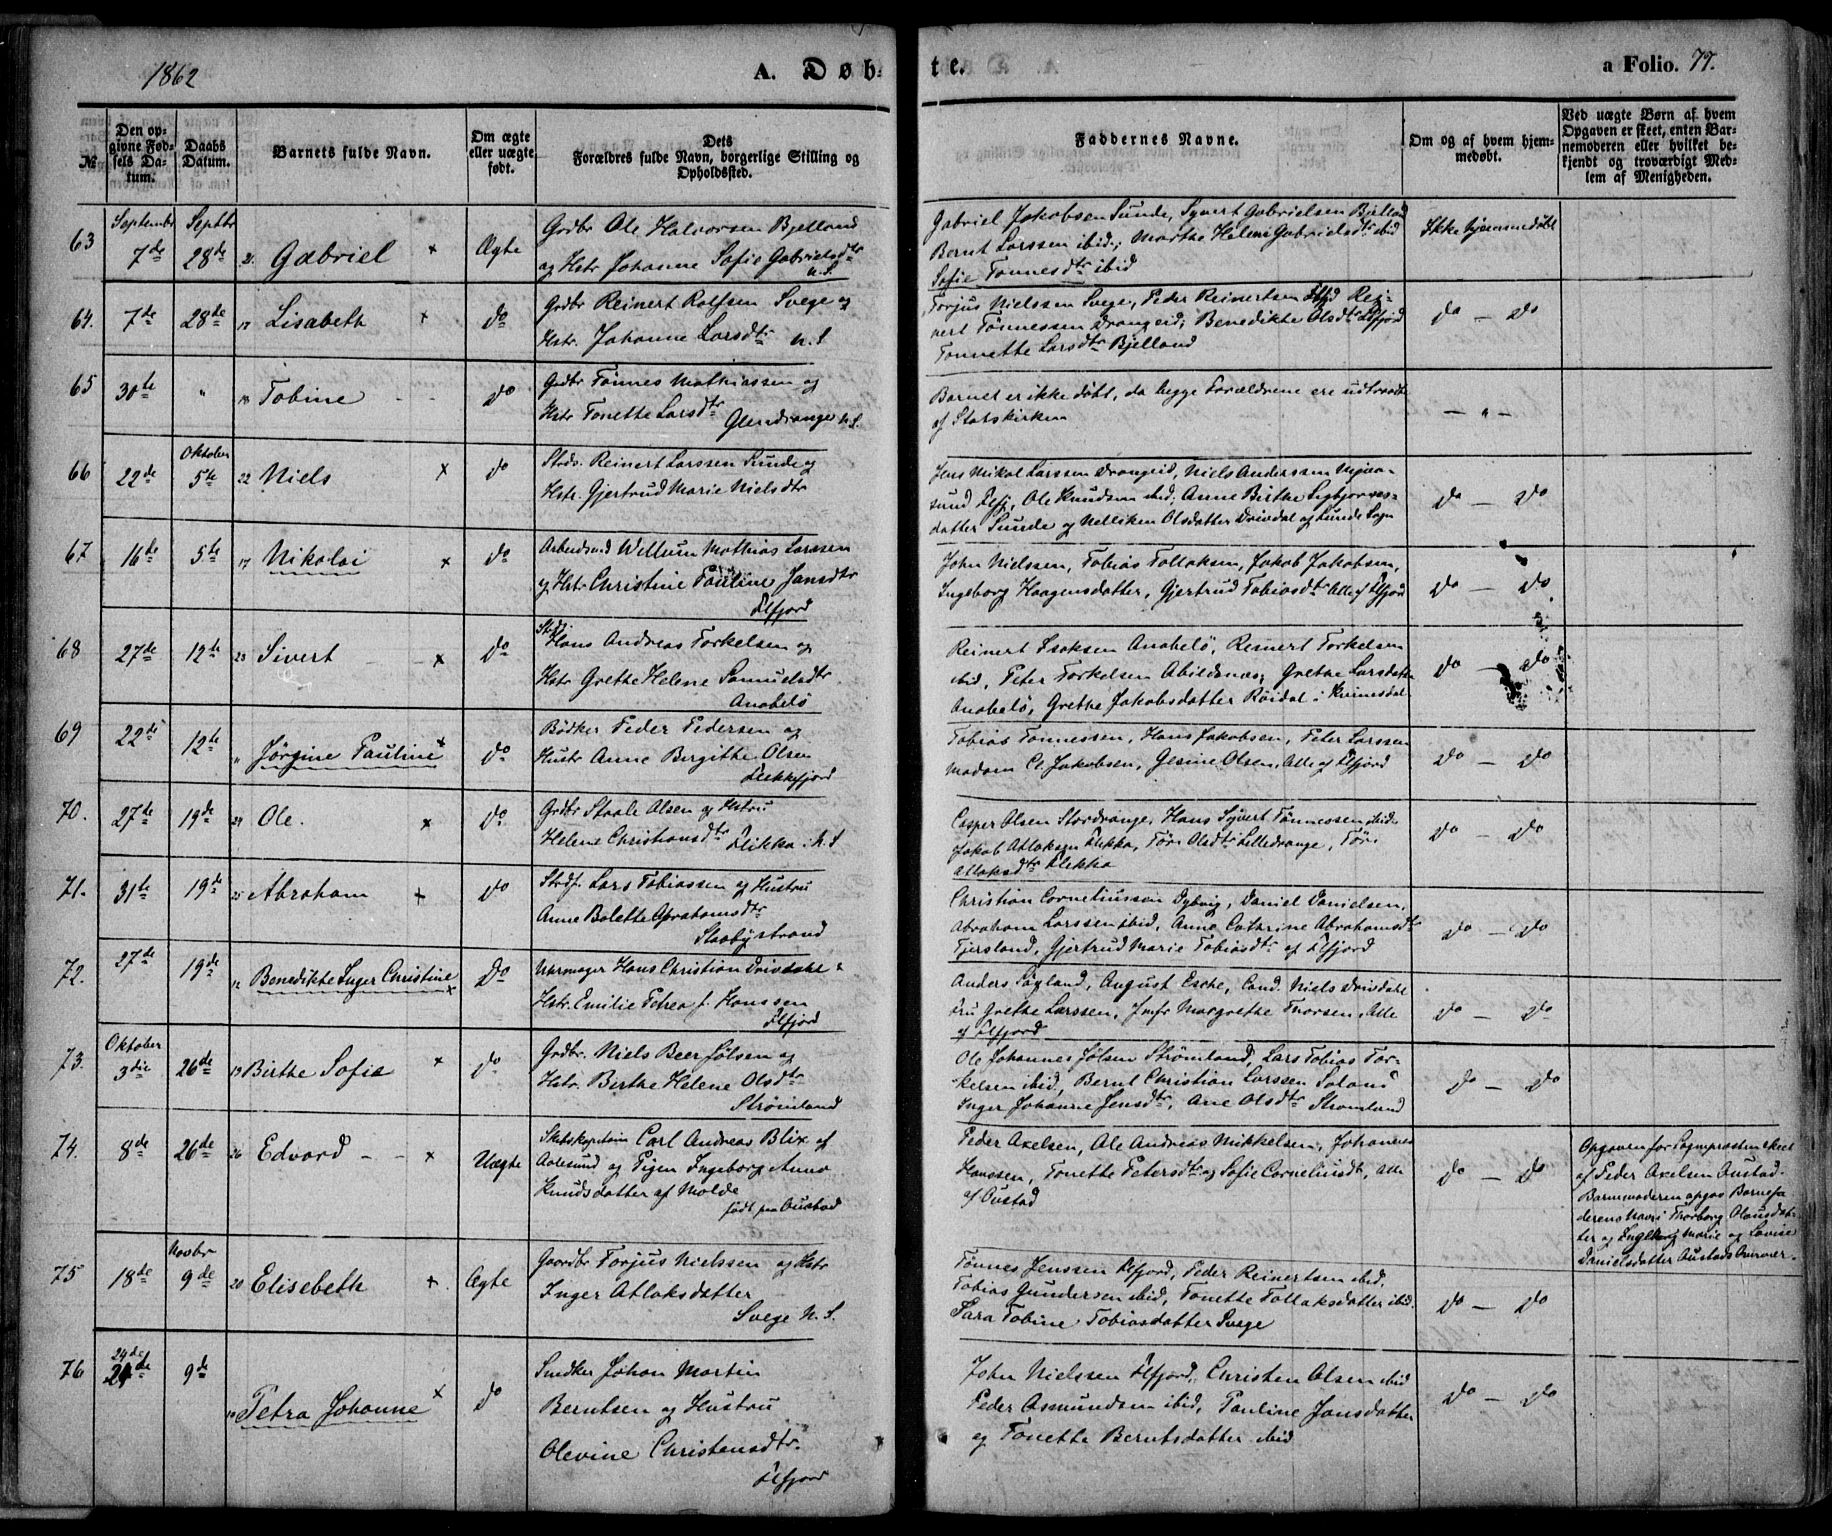 1862
A. Døbte.
a Folio. 77.
№
Den opgivne Fødsels Datum.
Daabs Datum.
Barnets fulde Navn.
Om ægte eller uægte født.
Dets Forældres fulde Navn, borgerlige Stilling og Opholdssted.
Faddernes Navne.
Om og af hvem hjemmedøbt.
Ved uægte Børn af hvem Opgaven er skeet, enten Barnemoderen eller hvilket bekjendt og troværdigt Medlem af Menigheden.
63 Septembr 7de Septbr 28de 21 Gabriel x Ægte
Grdbr Ole Halvorsen Bjelland
og Hstr Johanne Sofie Gabrielsdtr
N.S.
Gabriel Jakobsen Sunde, Syvert Gabrielsen Bjelland
Bernt Larssen ibid; Marthe Helene Gabrielsdtr ibid
Sofie Tønnesdtr ibid
Ikke hjemmedøbt
64. 7de 28de 17 Lisabeth x do
Grdbr Reinert Rolfsen Svege og
Hstr. Johanne Larsdtr N.S
Torjus Nielssen Svege, Peder Reinertsen
Tønnessen Drangeid; Benedikte Olsdtr Flfjord
Tonnette Larsdtr Bjelland
do — do
65 30te " 18 Tobine do
Grdbr Tønnes Mathiassen og
Hstr Tonette Larsdtr
Glendrange N.S.
Barnet er ikke døbt, da begge Forældrene ere udtraadte
af Statskirken
— " —
66 22de Oktober 5te 22 Niels x do
Strds. Reinert Larssen Sunde og
Hstr. Gjertrud Marie Nielsdtr
Jens Mikal Larssen Drangeid, Niels Anderssen
sund Flfj, Ole Knudsen ibid; Anne Birthe Sigbjørns-
datter Sunde og Nelliken Olsdatter Drivdal af Lunde Sogn
do — do
67 16de 5te 17 Nikolai x do
Arbeidsmd Wellum Mathias Larssen
og Hstr Christine Pauline Jansdtr
Flfjord
John Nielssen, Tobias Tollaksen, Jakob Jakobsen,
Ingeborg Haagensdatter, Gjertrud Tobiasdtr Alle af Flfjord
do — do
68 27de 12te 23 Sivert x do
Strds.
Hans Andreas Torkelsen og
Hstr Grethe Helene Samuelsdtr
Anabelø
Reinert Isaksen Anabelø, Reinert Torkelsen
ibid, Peter Torkelsen Abildsnæs; Grethe Larsdatter
Anabelø, Grethe Jakobsdatter Røidal i Kvinesdal
do — do
69 22de 12te " Jørgine Pauline x do
Bødker Peder Pedersen og
Hustr Anne Birgitte Olsen
Flekkefjord
Tobias Tønnessen, Hans Jakobsen, Peter Larssen
Madam C. Jakobsen, Gesine Olsen, Alle af Flfjord
do — do
70. 27de 19de 24 Ole. x do
Grdbr Staale Olsen og Hstru
Helene Christiansdtr Flikka N.S
Casper Olsen Stordrange, Hans Syvert Tønnessen ibid
Jakob Atlaksen Flikka, Tøri Olsdtr Lilledrange, Tøri
Atlaksdtr Flikka
do — do
71. 31te 19de 25 Abraham x do
Strdf. Lars Tobiassen og Hustru
Anne Bolette Abrahamsdtr
Staabystrand
Christian Corneliusson Dybvig, Daniel Danielsen,
Abraham Larssen ibid, Anne Cathrine Abrahamsdtr
Tjørsland, Gjertrud Marie Tobiasdtr af Flfjord
do — do
72. 27de 19de 12 Benedikte Inger Christine x do
Uhrmager Hans Christian Drivdahl &
Hstr. Emilie Petrea f. Hanssen
Flfjord
Anders Søyland, August Esche, Cand. Niels Drivdahl
Fru Grethe Larssen, Jmfr Margrethe Thorsen, Alle
af Flfjord
do — do
73. Oktober 3die 26de 19 Birthe Sofie x do
Grdbr. Niels Beer Jølsen og
Hstr. Birthe Helene Olsdtr
Strømland
Ole Johannes Jølsen Strømland, Lars Tobias Tor-
kelsen ibid, Bernt Christian Larssen Soland
Inger Johanne Jensdtr, Ane Olsdtr Strømland
do — do
74. 8de 26de 26 Edvard x Uægte
Skibskaptain Carl Andreas Blix af
Aalesund og Pigen Ingeborg Anna
Knudsdatter af Molde
født paa Austad
Peder Axelsen, Ole Andreas Mikkelsen, Johannes
Hanssen, Tonette Petersdtr og Sofie Corneliusdt, Alle
af Austad
do — do
Opgaven for Sognepræsten skeet
af Peder Axelsen Austad.
Barnemoderen opgav Barnefa
derens Navn i Thorborg Olausdat-
ter og Ingeborg Marie og Lovise
Danielsdatter Austads Nærvær.
75 18de Novbr 9de 20 Elisebeth x Ægte
Gaardbr Torjus Nielssen og Hstr
Inger Atlaksdatter
Svege N.S.
Tønnes Jenssen Flfjord, Peder Reinertsen ibid,
Tobias Gundersen ibid, Tonette Tollaksdatter ibid,
Sara Tobine Tobiasdatter Svege
do — do
76 24de 24de 9de Petra Johanne x do
Snedker Johan Martin
Berntsen og Hustru
Olevine Christensdtr.
Flfjord
John Nielssen Flfjord, Christen Olsen ibid
Peder Asmundsen ibid, Pauline Jansdatter
og Tonette Berntsdatter ibid
do — do